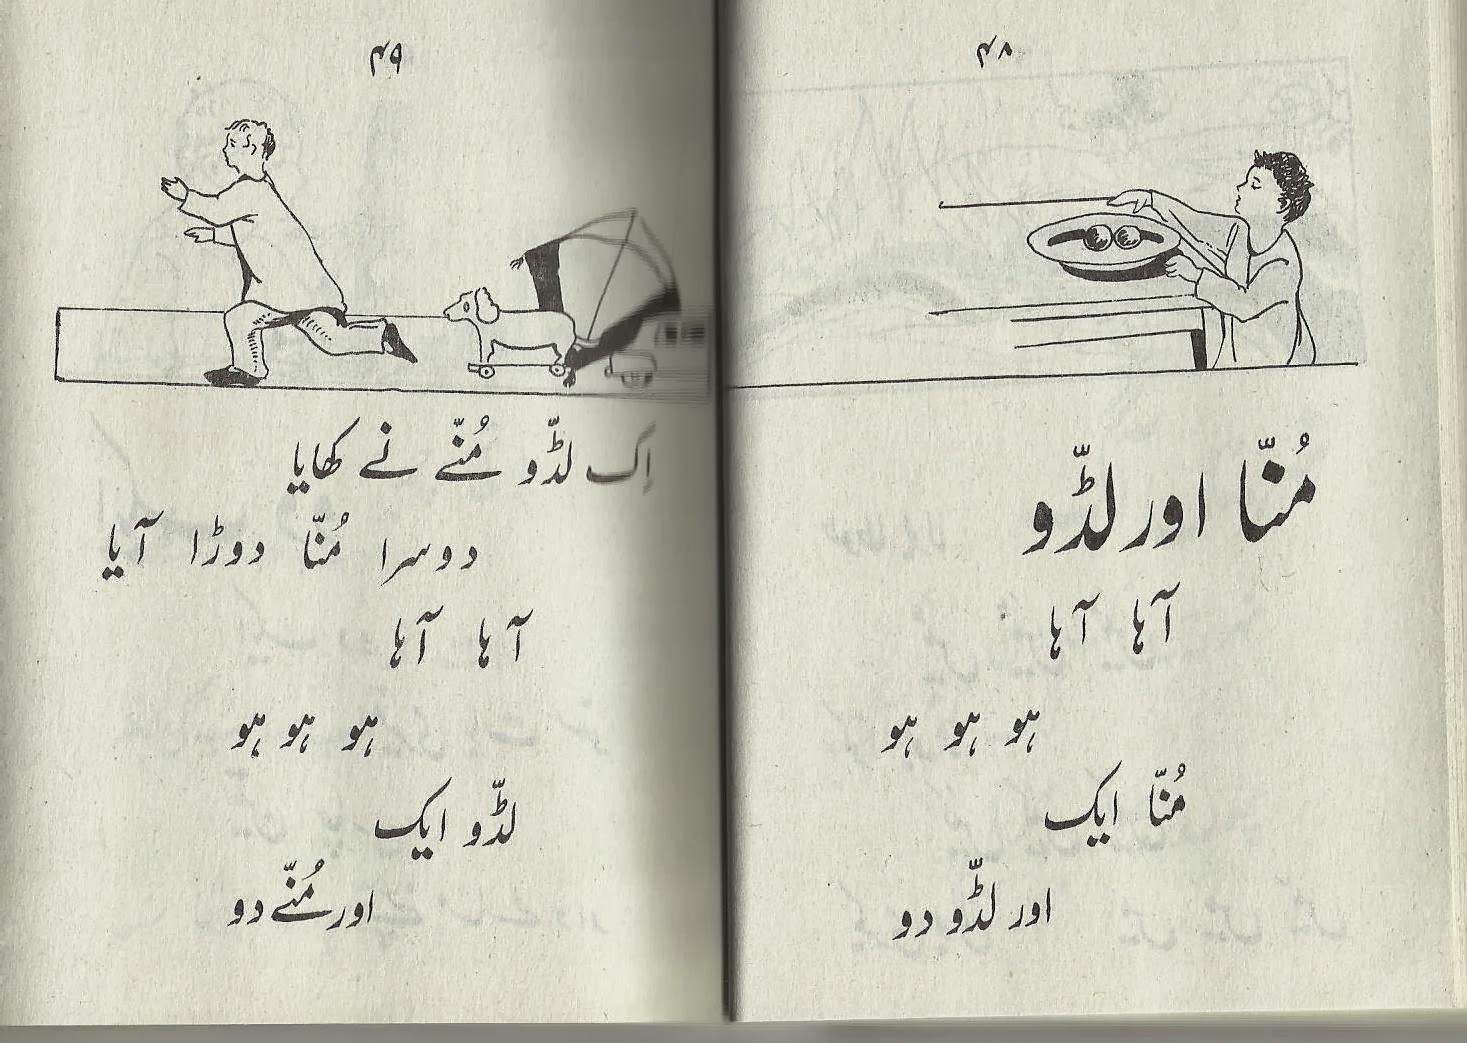 ۴۸
مُنّا اور لڈّو
آہا آہا
ہو ہو ہو
مُنّا ایک
اور لڈّو دو
۴۹
اِک لڈّو مُنّے نے کھایا
دوسرا مُنّا دوڑا آیا
آہا آہا
ہو ہو ہو
لڈّو ایک
اور مُنّے دو